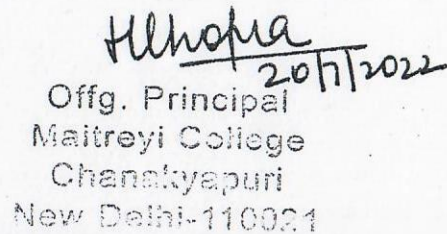 HChopra
20/7/2022
Offg. Principal
Maitreyi College
Chanakyapuri
New Delhi-110021